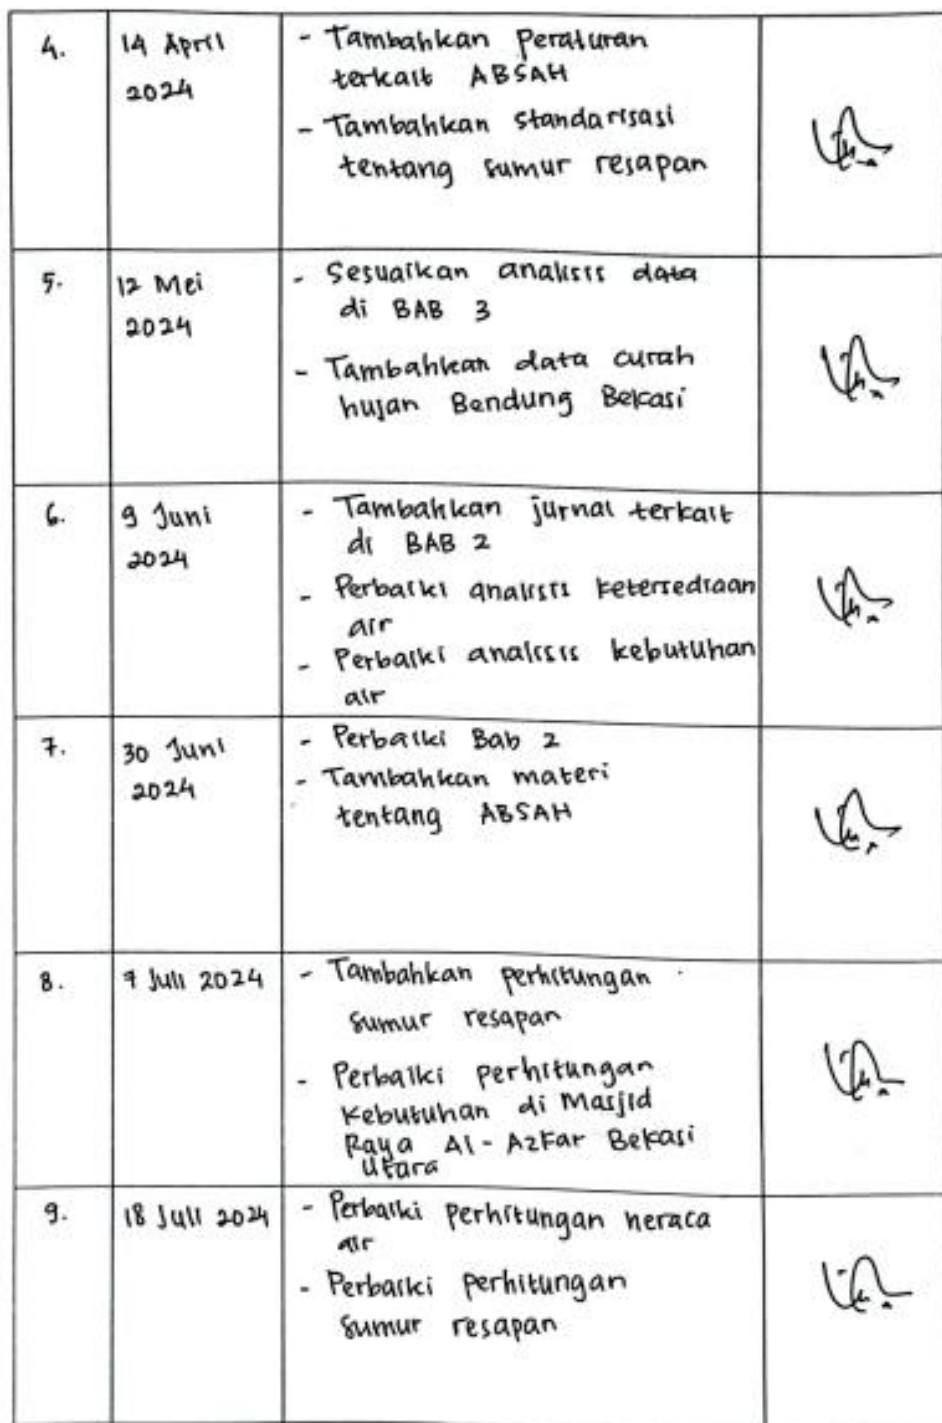 4.
14 April
2024
- Tambahkan Peraturan
terkait ABSAH
- Tambahkan standarisasi
tentang sumur resapan
5.
12 Mei
2024
- Sesuaikan analisis data
di BAB 3
- Tambahkan data curah
hujan Bendung Bekasi
6.
9 Juni
2024
- Tambahkan jurnal terkait
di BAB 2
- Perbaiki analisis ketersediaan
air
- Perbaiki analisis kebutuhan
air
7.
30 Juni
2024
- Perbaiki Bab 2
- Tambahkan materi
tentang ABSAH
8.
7 Juli 2024
- Tambahkan perhitungan
sumur resapan
- Perbaiki perhitungan
kebutuhan di Masjid
Raya Al-Azkar Bekasi
Utara
9.
18 Juli 2024
- Perbaiki perhitungan neraca
air
- Perbaiki perhitungan
sumur resapan